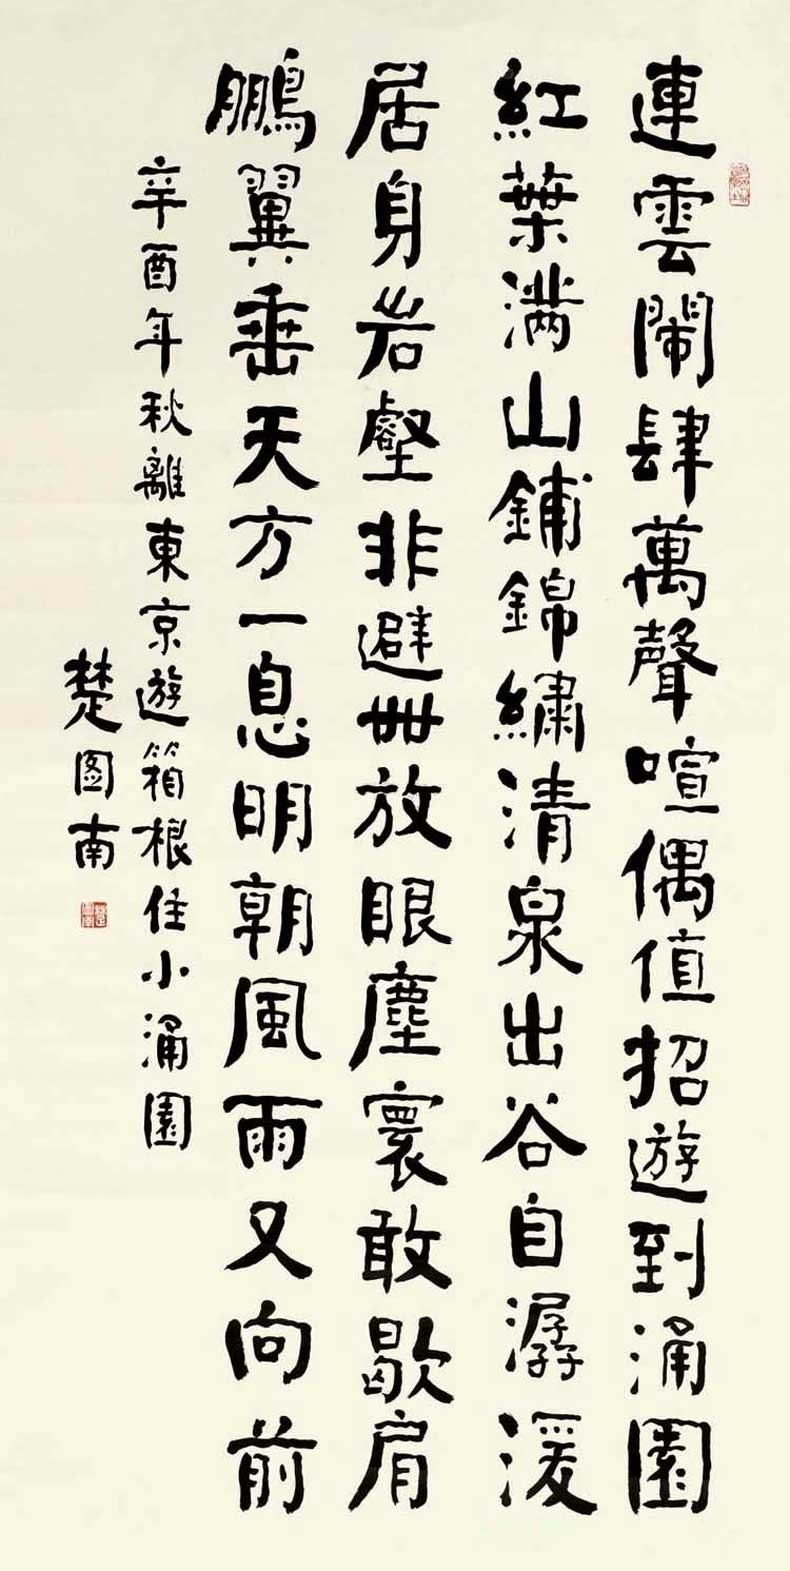 連雲鬧肆萬聲喧偶值招遊到涌園
紅葉满山鋪錦繡清泉出谷自潺湲
居身岩壑非避世放眼塵寰敢歇肩
鵬翼垂天方一息明朝風雨又向前
辛酉年秋離東京遊箱根住小涌園
楚图南